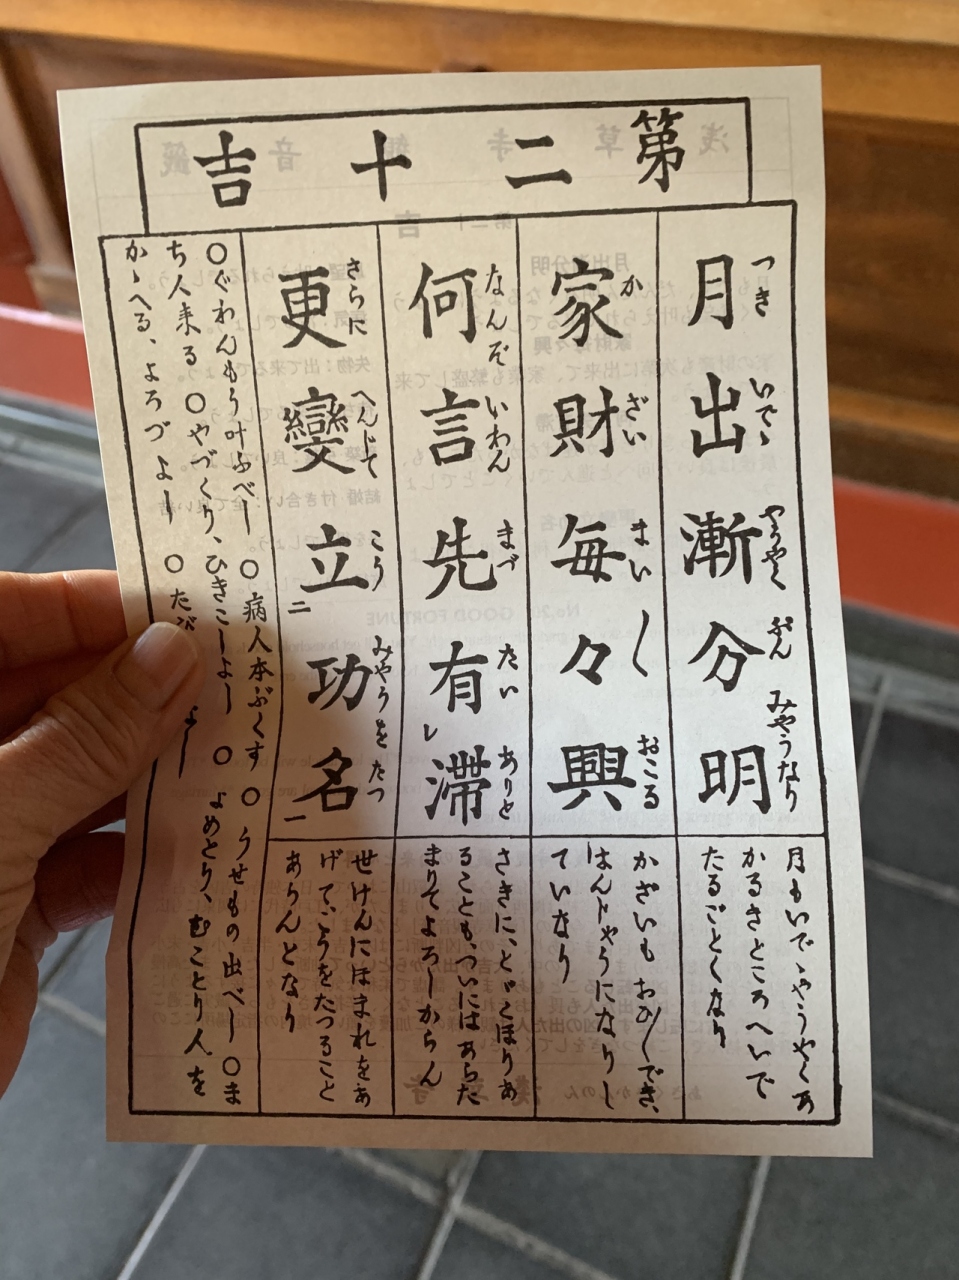 第二十吉
月出漸分明
つき いでゝ やうやく ぶん みやうなり
月もいでゝやうやくあ
かるきところへいで
たるごとくなり
家財毎々興
か ざい まい〱 おこる
かざいも おひ〱でき、
はんじやうになりし
ていなり
何言先有滞
なんぞ いわん まづ たい ありと
レ
さきに、とゞこほりあ
ることも、ついにはあらた
まりてよろしからん
更變立功名
さらに へんじて こう みやうを たつ
二
一
せけんにほまれをあ
げて、こうをたつること
あらんとなり
〇ぐわんもう叶ふべし 〇病人本ぶくす 〇うせもの出べし 〇ま
ち人来る 〇やづくり、ひきこしよし 〇よめとり、むことり人を
かゝへる、よろづよし 〇たび
よし
浅草寺観音籤
No. 20 GOOD FORTUNE